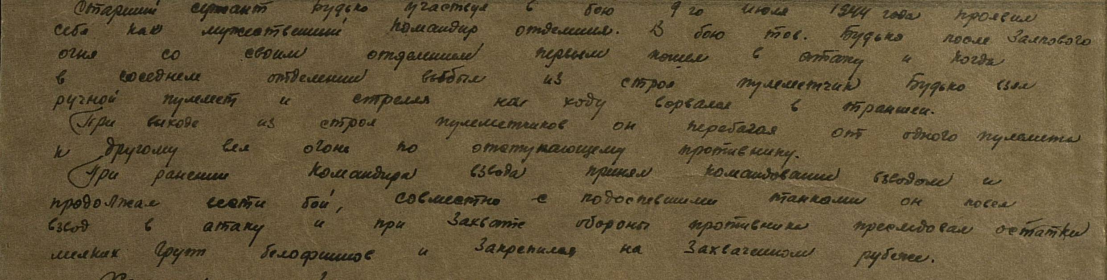 Старший сержант Будько участвуя в бою 9 го июля 1944 года проявил
себя как мужественный командир отделения. В бою тов. Будько после залпового
огня со своим отделением первым пошел в атаку и когда
в соседнем отделении выбыл из строя пулеметчик Будько взял
ручной пулемет и стреляя на ходу ворвался в траншеи.
При выходе из строя пулеметчиков он перебегая от одного пулемета
к другому вел огонь по отступающему противнику.
При ранении командира взвода принял командование взводом и
продолжал вести бой, совместно с подоспевшими танками он повел
взвод в атаку и при захвате обороны противника преследовал остатки
мелких групп белофиннов и закрепился на захваченном рубеже.